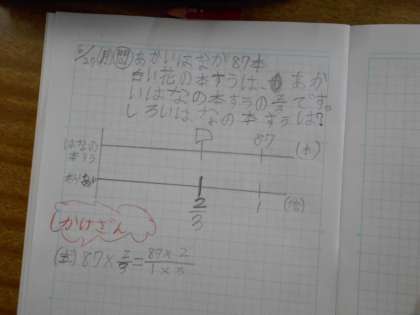 6/20(月)問 あかいはなが87本
白い花の本すうは、あか
いはなの本すうの2/3です。
しろいはなの本すうは?
はなの本すう
□ 87 (本)
わりあい
2/3 1 (倍)
かけざん
(式) 87×2/3=87×2/1×3